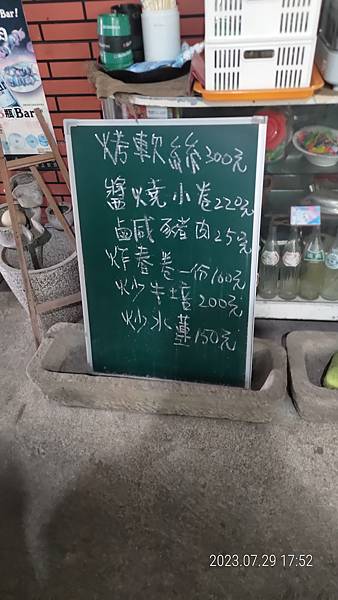 Bar!
Bar
烤軟絲300元
醬燒小卷220元
鹵咸豬肉250元
炸春卷一份100元
炒牛培200元
炒水蓮150元
2023.07.29 17:52